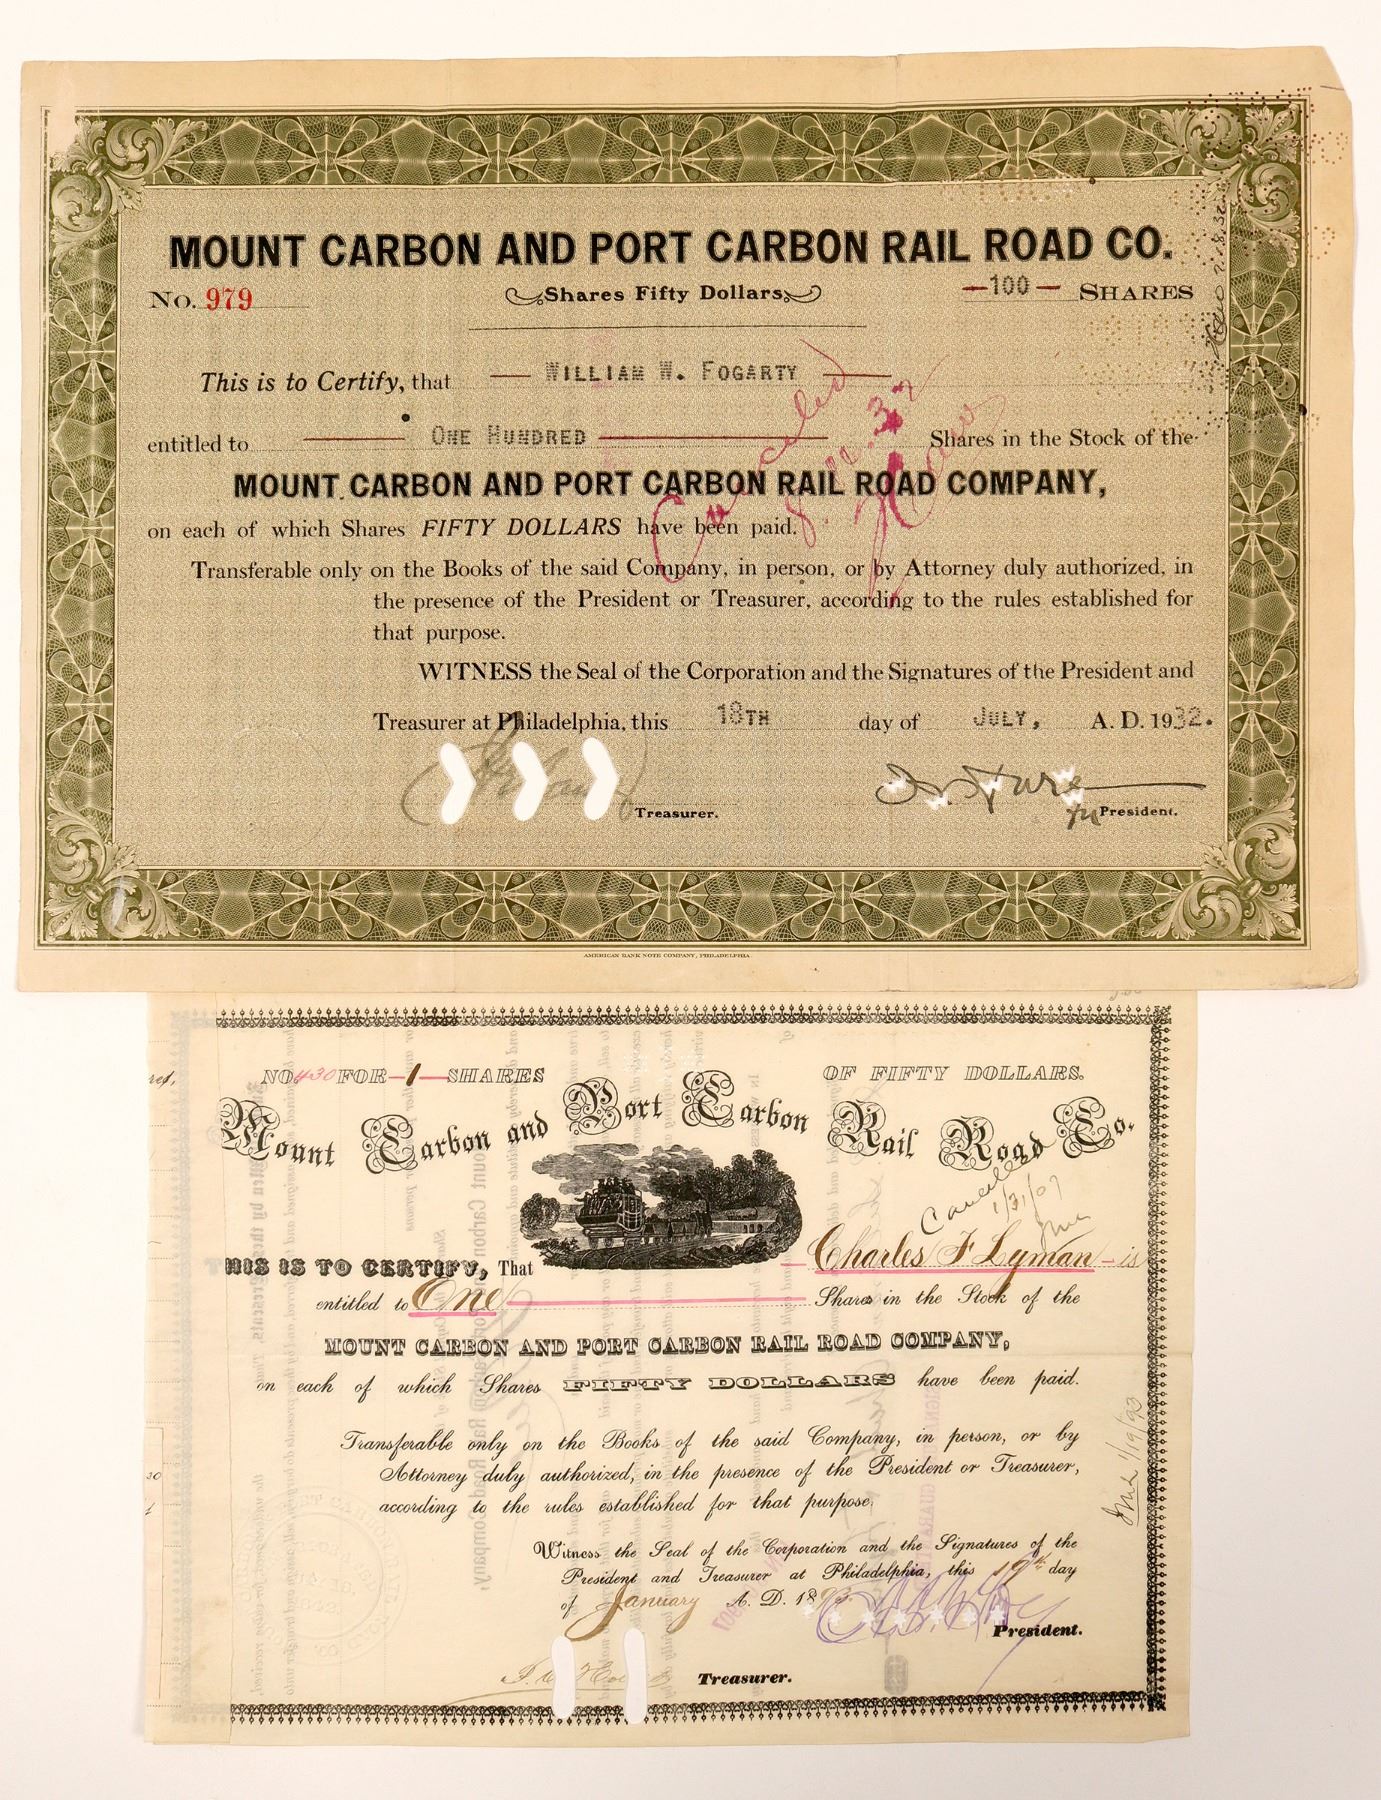 MOUNT CARBON AND PORT CARBON RAIL ROAD CO.
No. 979 Shares Fifty Dollars —100— SHARES
This is to Certify, that — WILLIAM W. FOGARTY —
entitled to ONE HUNDRED Shares in the Stock of the
MOUNT CARBON AND PORT CARBON RAIL ROAD COMPANY,
on each of which Shares FIFTY DOLLARS have been paid.
Transferable only on the Books of the said Company, in person, or by Attorney duly authorized, in
the presence of the President or Treasurer, according to the rules established for
that purpose.
WITNESS the Seal of the Corporation and the Signatures of the President and
Treasurer at Philadelphia, this 18TH day of JULY, A. D. 1932.
Treasurer. President.
Canceled
AMERICAN BANK NOTE COMPANY, PHILADELPHIA
NO 430 FOR —1— SHARES OF FIFTY DOLLARS.
Mount Carbon and Port Carbon Rail Road Co.
Cancelled
1/31/07
THIS IS TO CERTIFY, That Charles F Lyman — is
entitled to One Shares in the Stock of the
MOUNT CARBON AND PORT CARBON RAIL ROAD COMPANY,
on each of which Shares FIFTY DOLLARS have been paid.
Transferable only on the Books of the said Company, in person, or by
Attorney duly authorized, in the presence of the President or Treasurer,
according to the rules established for that purpose.
Witness the Seal of the Corporation and the Signatures of the
President and Treasurer at Philadelphia, this 19th day
of January A. D. 1893.
President.
Treasurer.
1/19/93